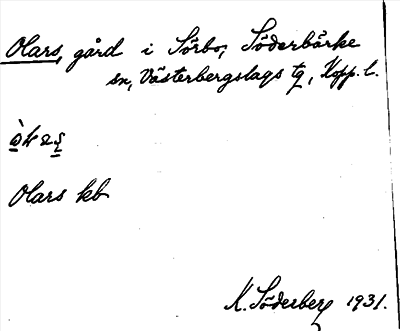 Olars, gård i Sörbo, Söderbärke
sn, Västerbergslags tg, Kopp. l.
Olars kb
K. Söderberg 1931.